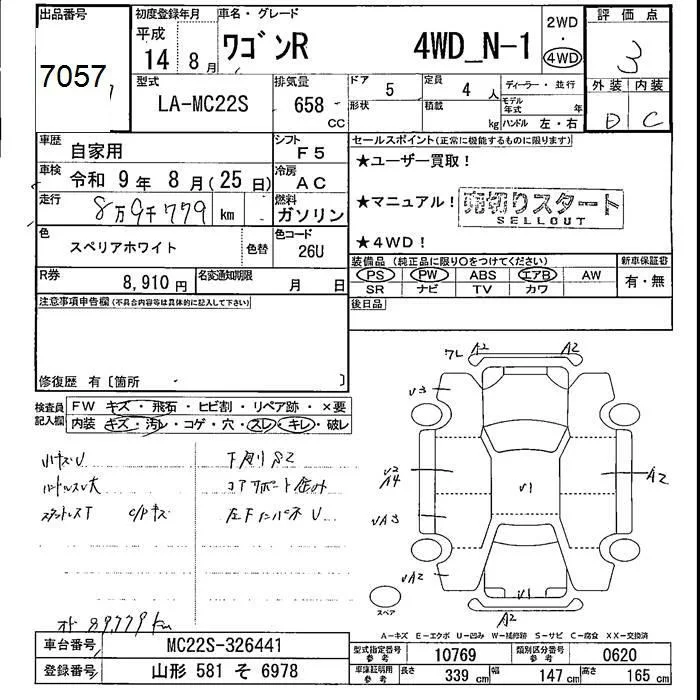 出品番号
7057
初度登録年月
平成
14 8月
車名・グレード
ワゴンR 4WD_N-1
2WD
・
4WD
評価点
3
外装 内装
D C
型式
LA-MC22S
排気量
658
CC
ドア
5
形状
定員
4人
積載
kg
ディーラー・並行
モデル
年式 年
ハンドル 左・右
車歴
自家用
シフト
F5
車検
令和 9年 8月(25日)
冷房
AC
走行
8万9千779 km
燃料
ガソリン
色
スペリアホワイト
色替
色コード
26U
R券
8,910円
名変通知期限
月 日
セールスポイント(正常に機能するものに限ります)
★ユーザー買取!
★マニュアル!
売切りスタート
SELLOUT
★4WD!
装備品 (純正品に限り○をつけてください)
新車保証書
PS PW ABS エアB AW
有・無
SR ナビ TV カワ
後日品
注意事項申告欄(不具合内容等は具体的に記入して下さい)
修復歴 有〔箇所 〕
検査員
記入欄
FW キズ・飛石・ヒビ割・リペア跡・×要
内装 キズ・汚レ・コゲ・穴・スレ・キレ・破レ
小キズU
下廻りS2
コアサポート歪み
C/Pキズ
オド 89779km
7L A2 A2
U3
U2
A4
U1
A2
UA3
UA2
U1
A2
スペア
A-キズ E-エクボ U-凹み W-補修跡 S-サビ C-腐食 XX-交換済
車台番号
MC22S-326441
登録番号
山形 581 そ 6978
型式指定番号
参考
10769
類別区分番号
参考
0620
車庫証明用
参考
長さ
339 cm
幅
147 cm
高さ
165 cm